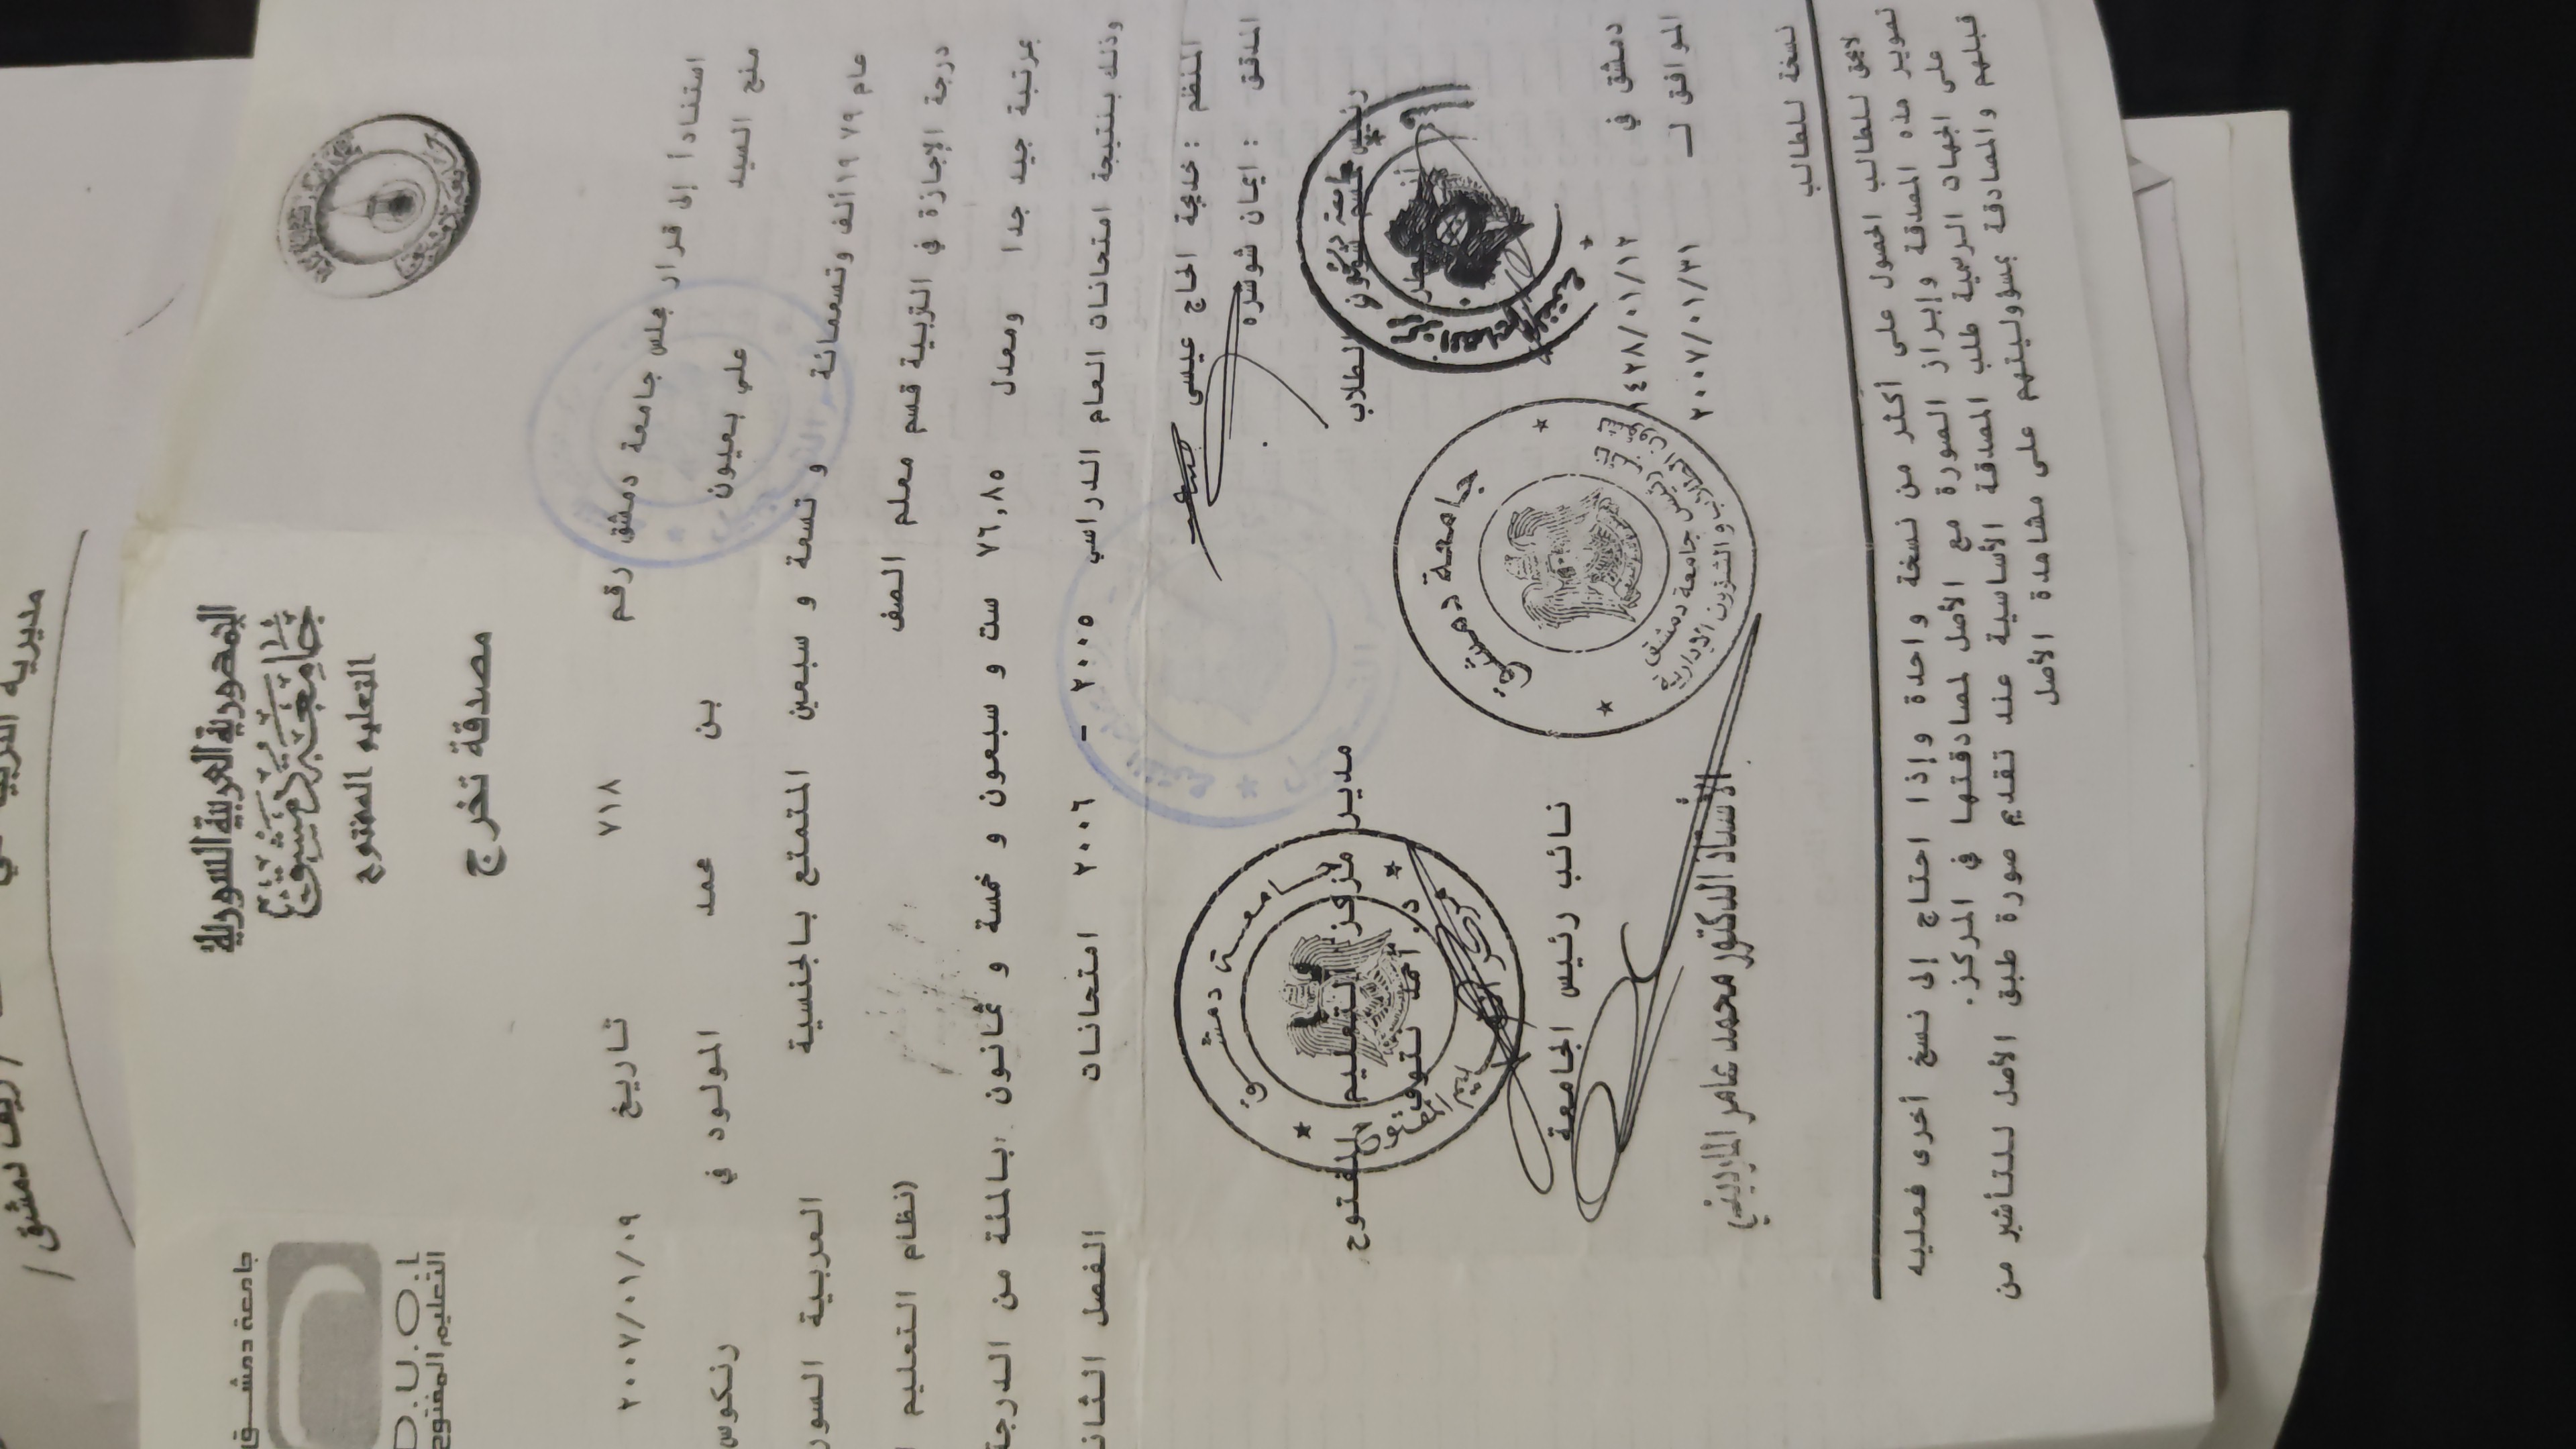 الجمهورية العربية السورية
جامعة دمشق
التعليم المفتوح
جامعة دمشق
D.U.O.L
التعليم المفتوح
مصدقة تخرج
استنادا إلى قرار مجلس جامعة دمشق رقم ٧١٨ تاريخ ٢٠٠٧/٠١/٠٩
منح السيد علي بعيون بن محمد المولود في رنكوس
عام ١٩٧٩ ألف وتسعمائة و تسعة و سبعين المتمتع بالجنسية العربية السور
درجة الإجازة في التربية قسم معلم الصف (نظام التعليم
بمرتبة جيد جدا ومعدل ٧٦,٨٥ ست و سبعون و خمسة و ثمانون بالمئة من الدرجة
وذلك بنتيجة امتحانات العام الدراسي ٢٠٠٥ - ٢٠٠٦ امتحانات الفصل الثان
المنظم : خديجة الحاج عيسى
المدقق : ايمان شوشرة
مدير مركز التعليم المفتوح
د. أحمد نتوف
جامعة دمشق
نائب رئيس الجامعة
الأستاذ الدكتور محمد عامر المارديني
جامعة دمشق
دمشق في ١٤٢٨/٠١/١٢
الموافق لـ ٢٠٠٧/٠١/٣١
نسخة للطالب
لايحق للطالب الحصول على أكثر من نسخة واحدة وإذا احتاج إلى نسخ أخرى فعليه
تصوير هذه المصدقة وإبراز الصورة مع الأصل لمصادقتها في المركز.
على الجهات الرسمية طلب المصدقة الأساسية عند تقديم صورة طبق الأصل للتأشير من
قبلهم والمصادقة بمسؤوليتهم على مشاهدة الأصل